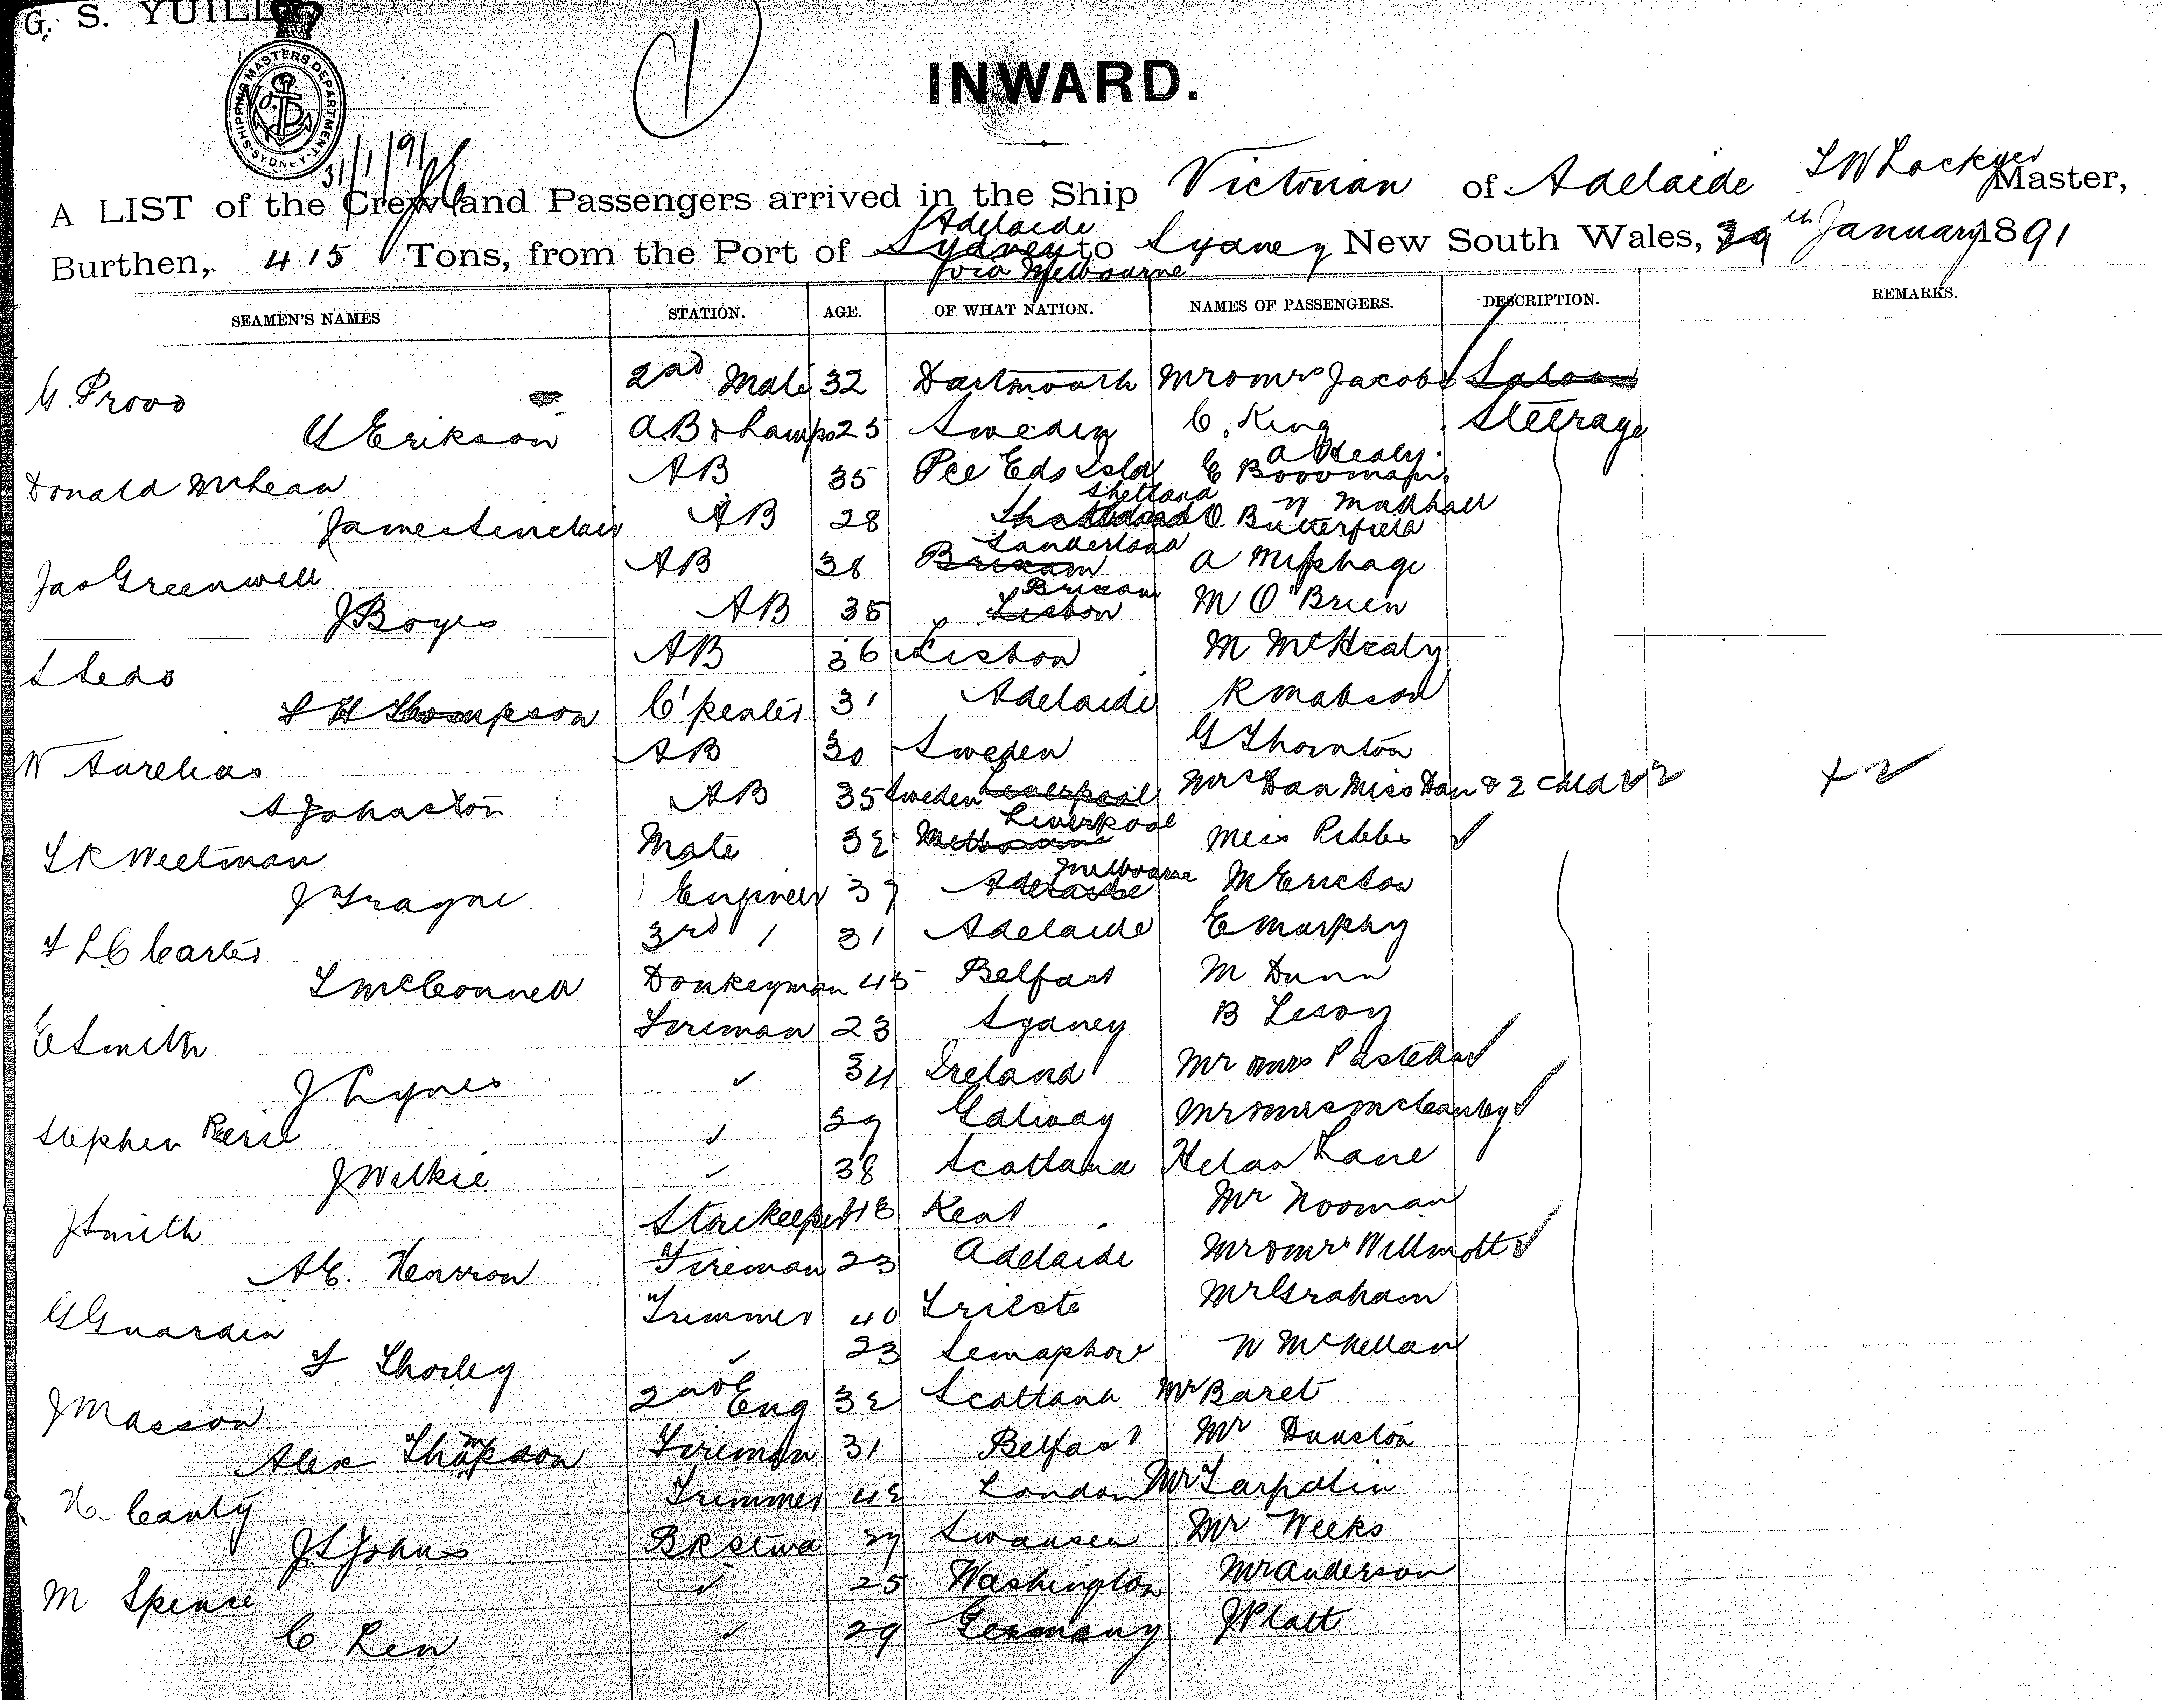 G. S. YUILL
SHIPPING MASTERS DEPARTMENT SYDNEY
1
INWARD.
31/1/91
A LIST of the Crew and Passengers arrived in the Ship Victorian of Adelaide L W Lockyer Master,
Adelaide
Burthen, 415 Tons, from the Port of Sydney to Sydney New South Wales, 29th January 1891
via Melbourne
SEAMEN'S NAMES STATION. AGE. OF WHAT NATION. NAMES OF PASSENGERS. DESCRIPTION. REMARKS.
G. Provo 2nd Mate 32 Dartmouth Mr & Mrs Jacobs Saloon
G Erikson AB & Lamps 25 Sweden C. King Steerage
A Healy
Donald McLean AB 35 Pce Eds Isld E Boooman
Shetland N Madhall
James Sinclair AB 28 O. Butterfield
Sunderland
Jas Greenwell AB 38 Brixam A McPhage
Brixam
J Boyes AB 35 Lisbon M O'Brien
S Sedo AB 36 Lisbon M McHealy
S H Thompson C'penter 31 Adelaide R Mabson
W Aurelias AB 30 Sweden G Thornton
A Johnston AB 35 Sweden Liverpool Mrs Dan Miss Dan & 2 child 2 + 2
Liverpool
L R Weetman Mate 32 Melbourne Miss Ribbe
Melbourne
J Tragne Engineer 37 Adelaide M Ericson
F L C Carter 3rd 31 Adelaide E Murphy
L McConnell Donkeyman 45 Belfast M Dunn
E Smith Fireman 23 Sydney B Leson
J Lynes ✓ 34 Ireland Mr & Mrs Pastellas
Stephen Peirse ✓ 29 Galway Mr & Mrs McCauley
J Wilkie ✓ 38 Scotland Helan Lane
J Smith Storekeeper 48 Kent Mr Nooman
A E. Hearron Fireman 23 Adelaide Mr & Mrs Willmott
G Gnarden Trimmer 40 Trieste Mr Graham
F Thorley ✓ 23 Semaphore N McKellan
J Masson 2nd Eng 32 Scotland Mr Baret
Alex Thompson Fireman 31 Belfast Mr Dunston
H. Canty Trimmer 42 London Mr Tarpalin
J S Johns BR Stwd 27 Swansea Mr Weeks
M Spence ✓ 25 Washington Mr Anderson
C Ren ✓ 29 Germany J Platt